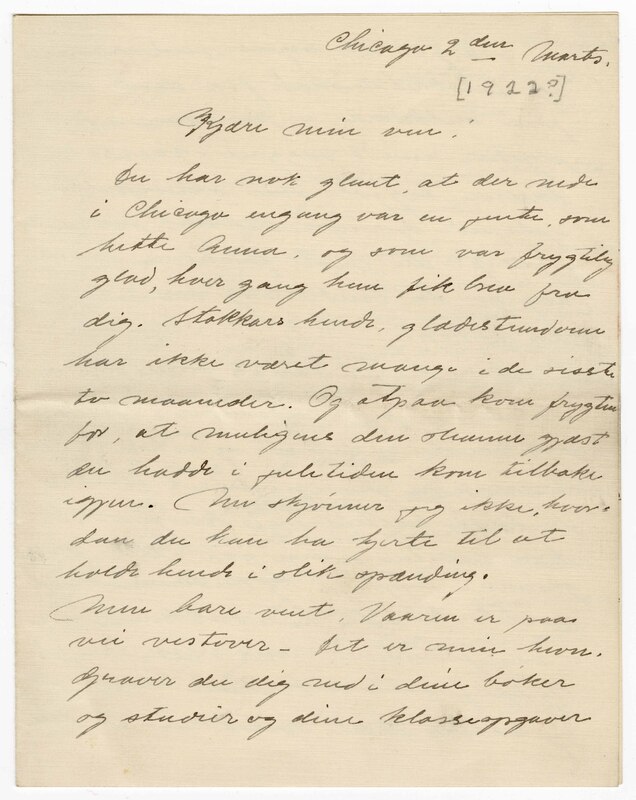 Chicago 2 den Marts.
[1922?]
Kjære min ven!
Du har nok glemt, at der nede
i Chicago engang var en jente, som
hette Anna, og som var frygtelig
glad, hver gang hun fik brev fra
dig. Stakkars hende, glædestunderne
har ikke været mange i de sisste
to maaneder. Og atpaa kom frygten
for, at muligens den slemme gjæst
du hadde i juletiden kom tilbake
igjen. Nu skjønner jeg ikke, hvor-
dan du kan ha hjerte til at
holde hende i slik spænding.
Men bare vent. Vaaren er paa
vei vestover – det er min hevn.
Graver du dig ned i dine bøker
og studier og dine klasseopgaver